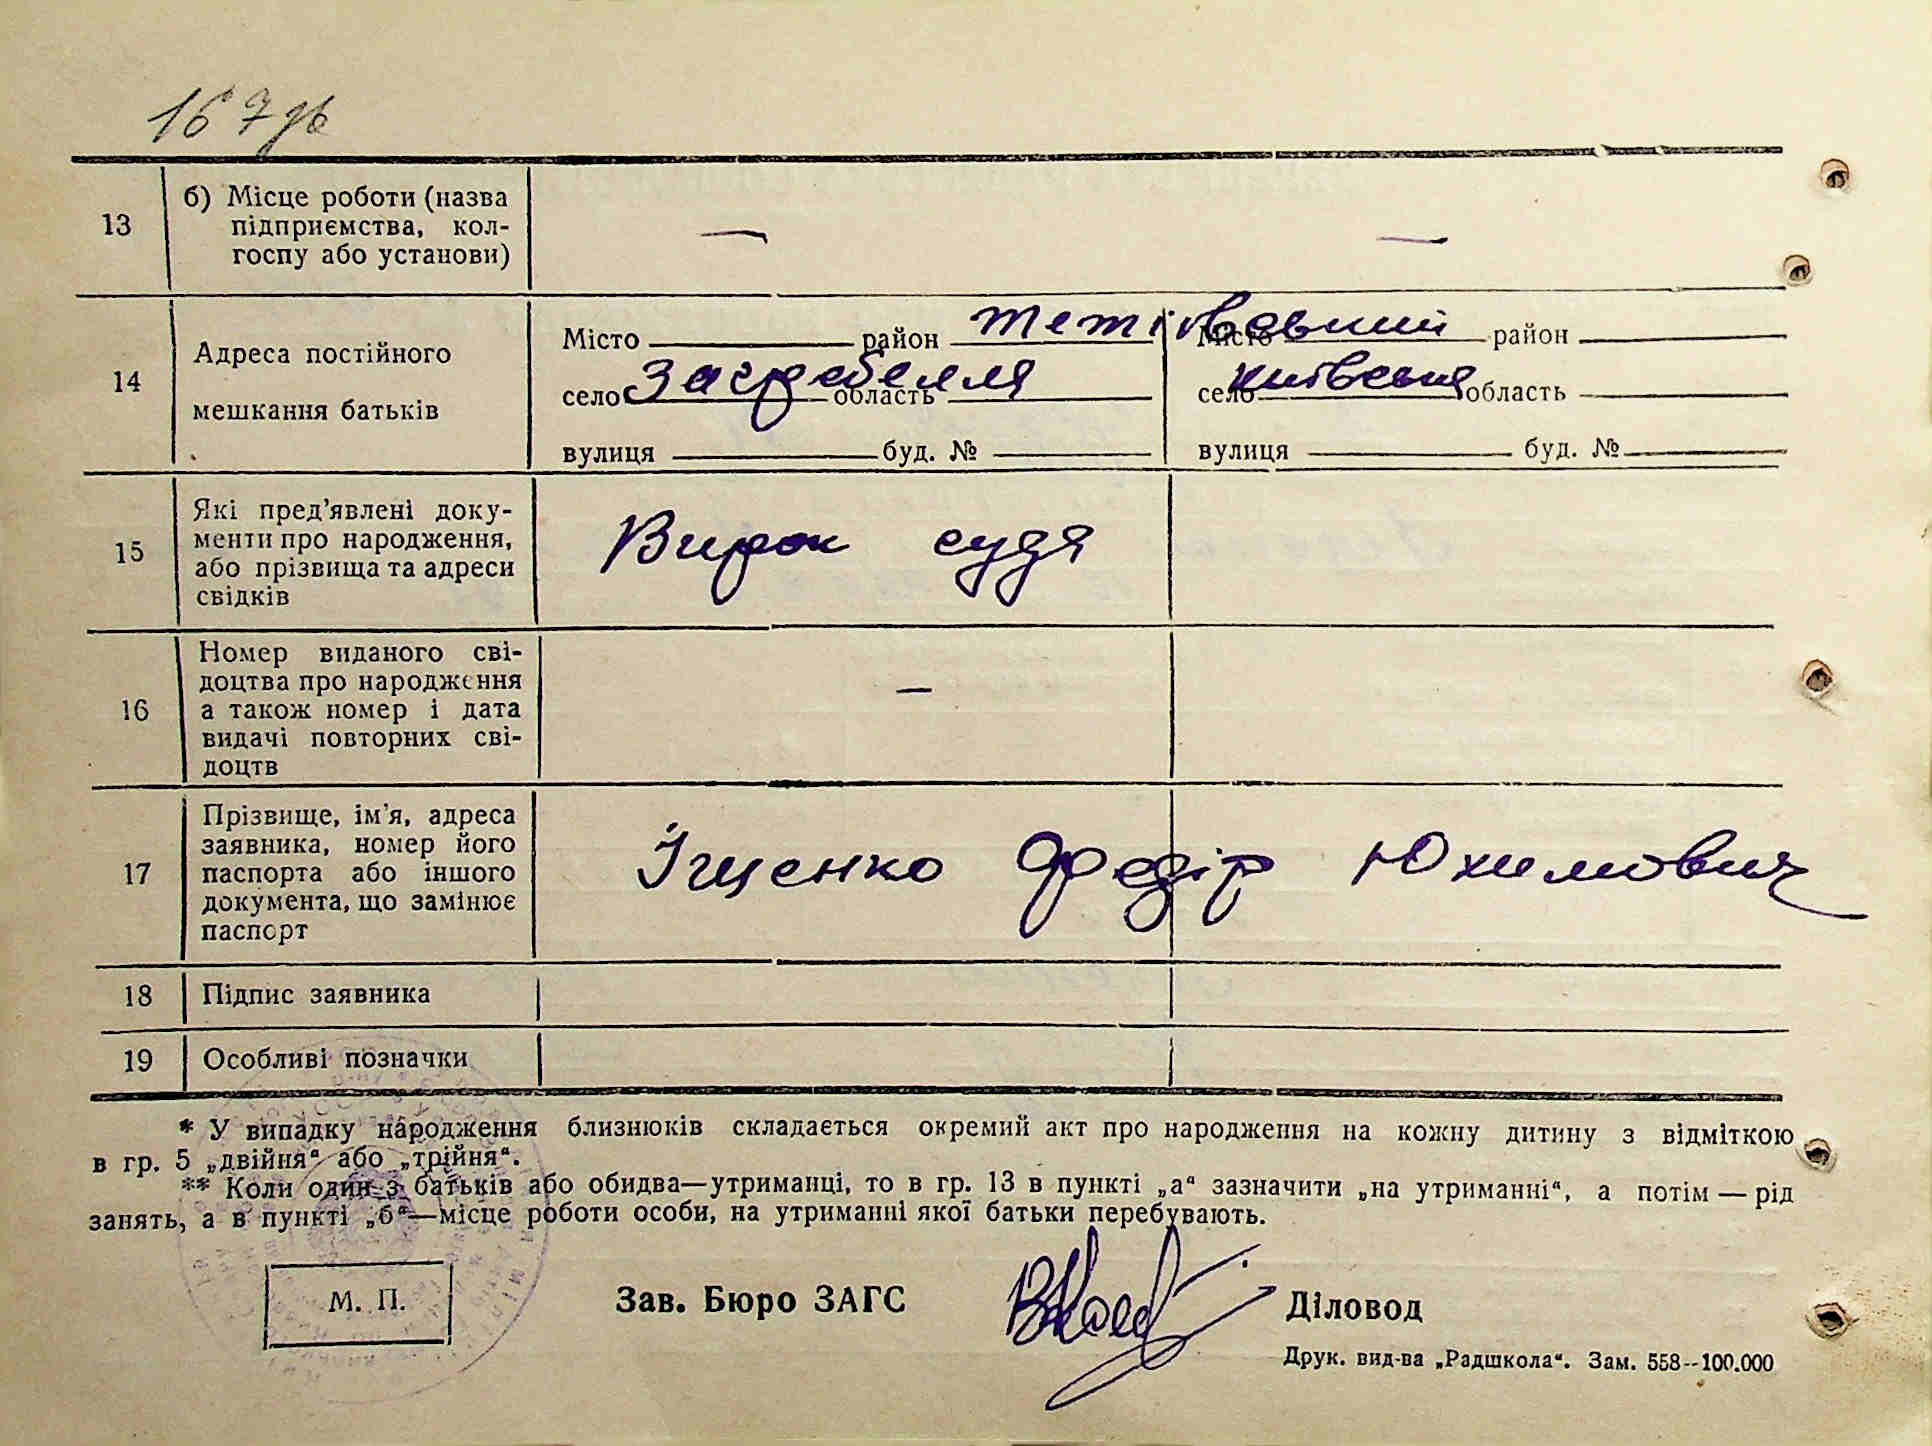 167 зв
13
б) Місце роботи (назва
підприємства, кол-
госпу або установи)
—
—
14
Адреса постійного
мешкання батьків
Місто район Тетіївський
село Загребелля область
вулиця буд. №
Місто район
село Київська область
вулиця буд. №
15
Які пред'явлені доку-
менти про народження,
або прізвища та адреси
свідків
Вирок суда
16
Номер виданого сві-
доцтва про народження
а також номер і дата
видачі повторних сві-
доцтв
—
17
Прізвище, ім'я, адреса
заявника, номер його
паспорта або іншого
документа, що замінює
паспорт
Іщенко Федір Юхимович
18
Підпис заявника
19
Особливі позначки
* У випадку народження близнюків складається окремий акт про народження на кожну дитину з відміткою
в гр. 5 „двійня“ або „трійня“.
** Коли один з батьків або обидва—утриманці, то в гр. 13 в пункті „а“ зазначити „на утриманні“, а потім — рід
занять, а в пункті „б“—місце роботи особи, на утриманні якої батьки перебувають.
М. П.
Зав. Бюро ЗАГС
Діловод
Друк. вид-ва „Радшкола“. Зам. 558--100.000